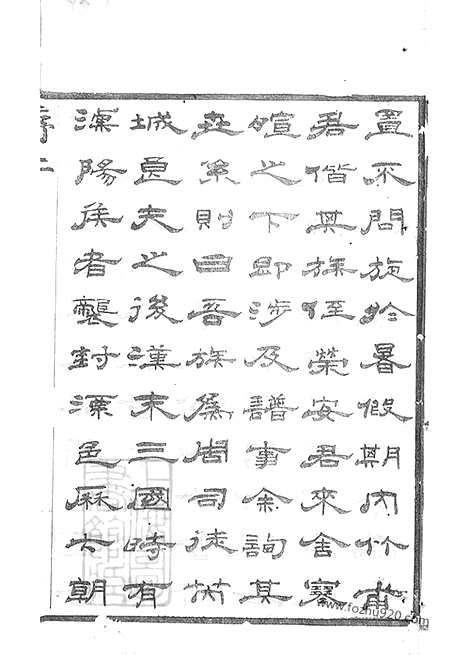 置不問旋於暑假期內竹甫
君偕其族侄榮安君來舍寒
喧之下即涉及譜事余詢其
世系則曰吾族為周司徒芮
城良夫之後漢末三國時有
溧陽侯者襲封溧邑歷六朝
序二
www.fozhu920.com